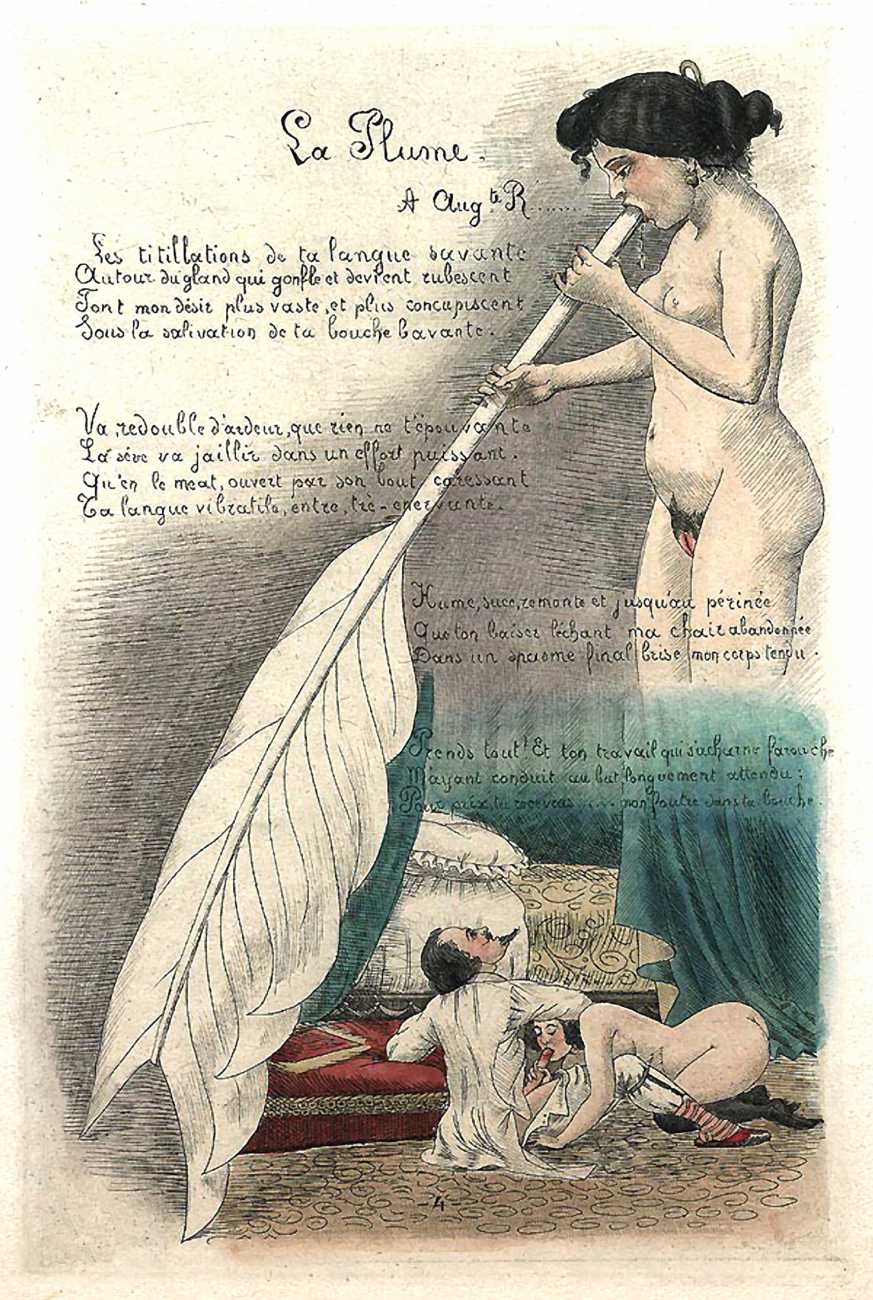 La Plume.
A Augte R.......
Les titillations de ta langue savante
Autour du gland qui gonfle et devient rubescent
Font mon désir plus vaste, et plus concupiscent
Sous la salivation de ta bouche bavante.
Va, redouble d'ardeur, que rien ne t'épouvante
La sève va jaillir dans un effort puissant.
Qu'en le meat, ouvert par son bout caressant
Ta langue vibratile, entre, trè-enervante.
Hume, suce, remonte et jusqu'au périnée
Que ton baiser léchant ma chair abandonnée
Dans un spasme final brise mon corps tendu.
Prends tout! Et ton travail qui s'acharne farouche
M'ayant conduit au but longuement attendu;
Pour prix, tu recevras .... mon foutre dans ta bouche.
-4-